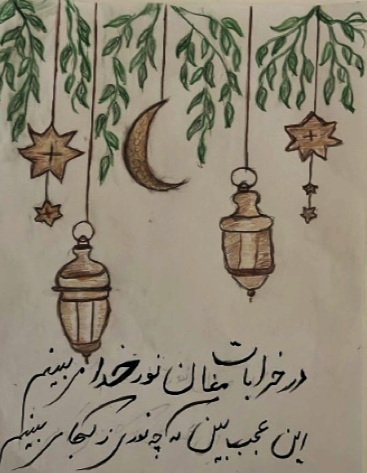 در خرابات مغان نور خدا می بینم
این عجب بین که چه نوری ز کجا می بینم